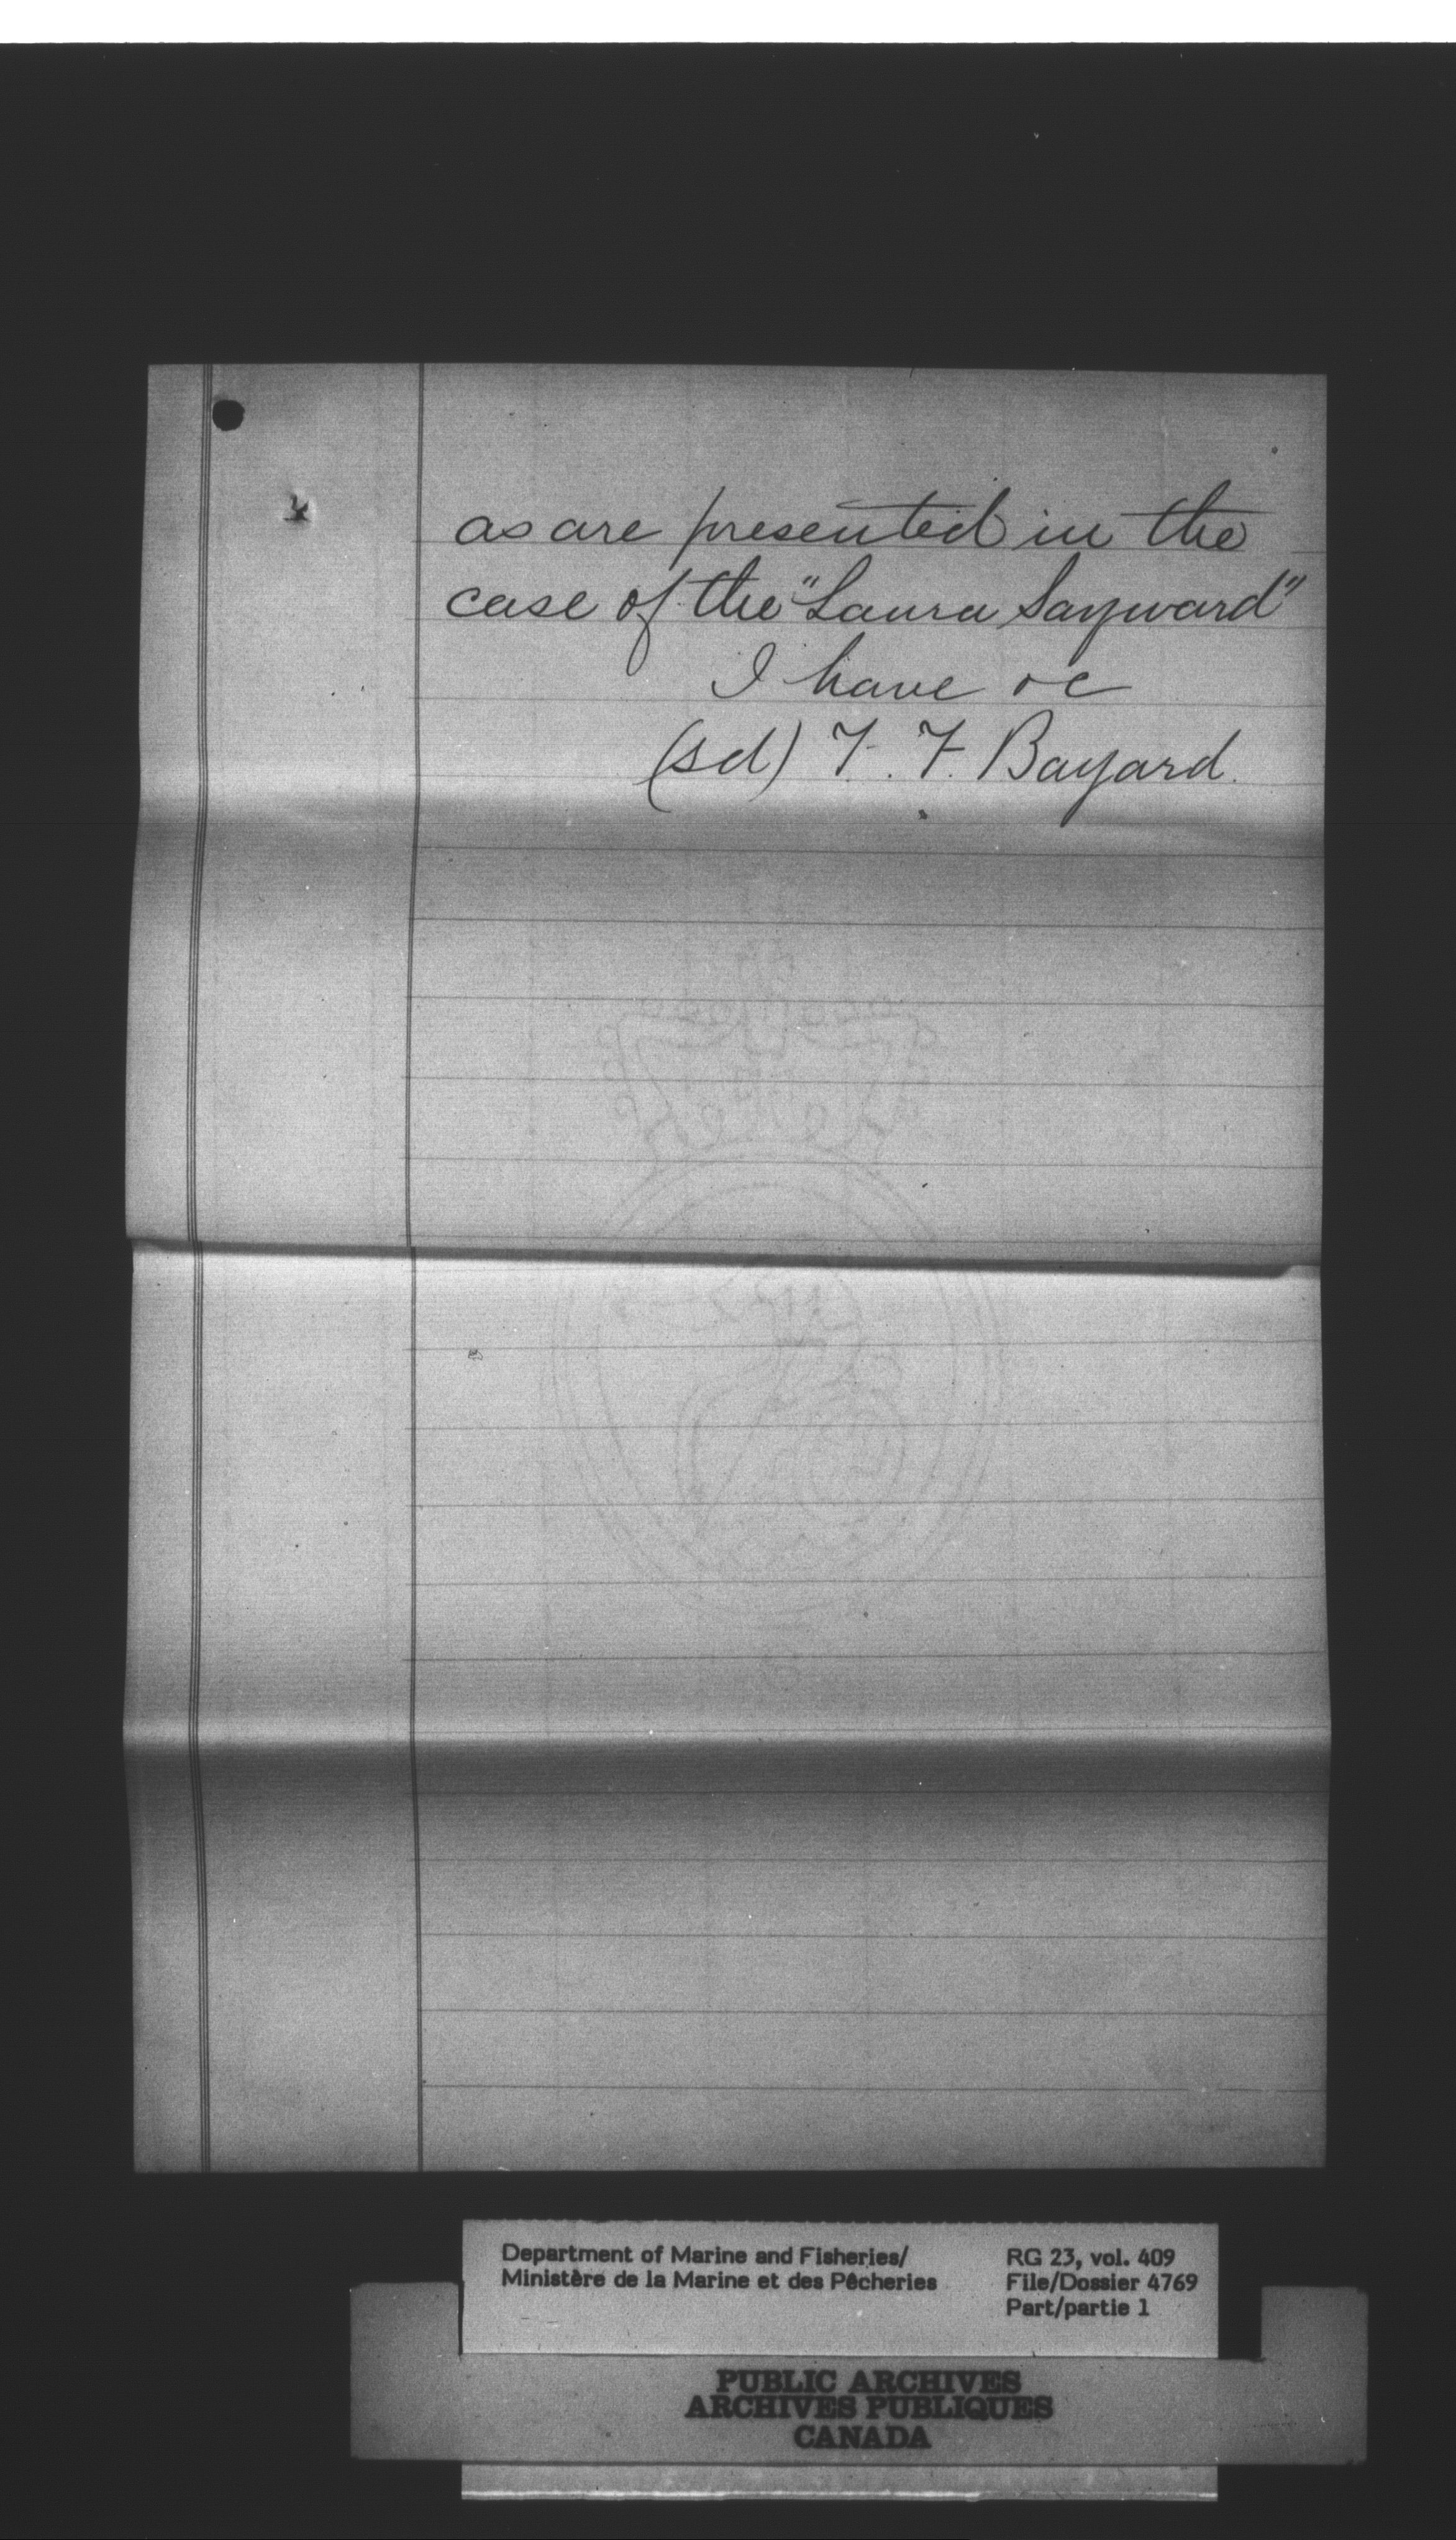 as are presented in the
case of the "Laura Sayward"
I have &c
(sd) T. F. Bayard.
Department of Marine and Fisheries/
Ministère de la Marine et des Pêcheries
RG 23, vol. 409
File/Dossier 4769
Part/partie 1
PUBLIC ARCHIVES
ARCHIVES PUBLIQUES
CANADA